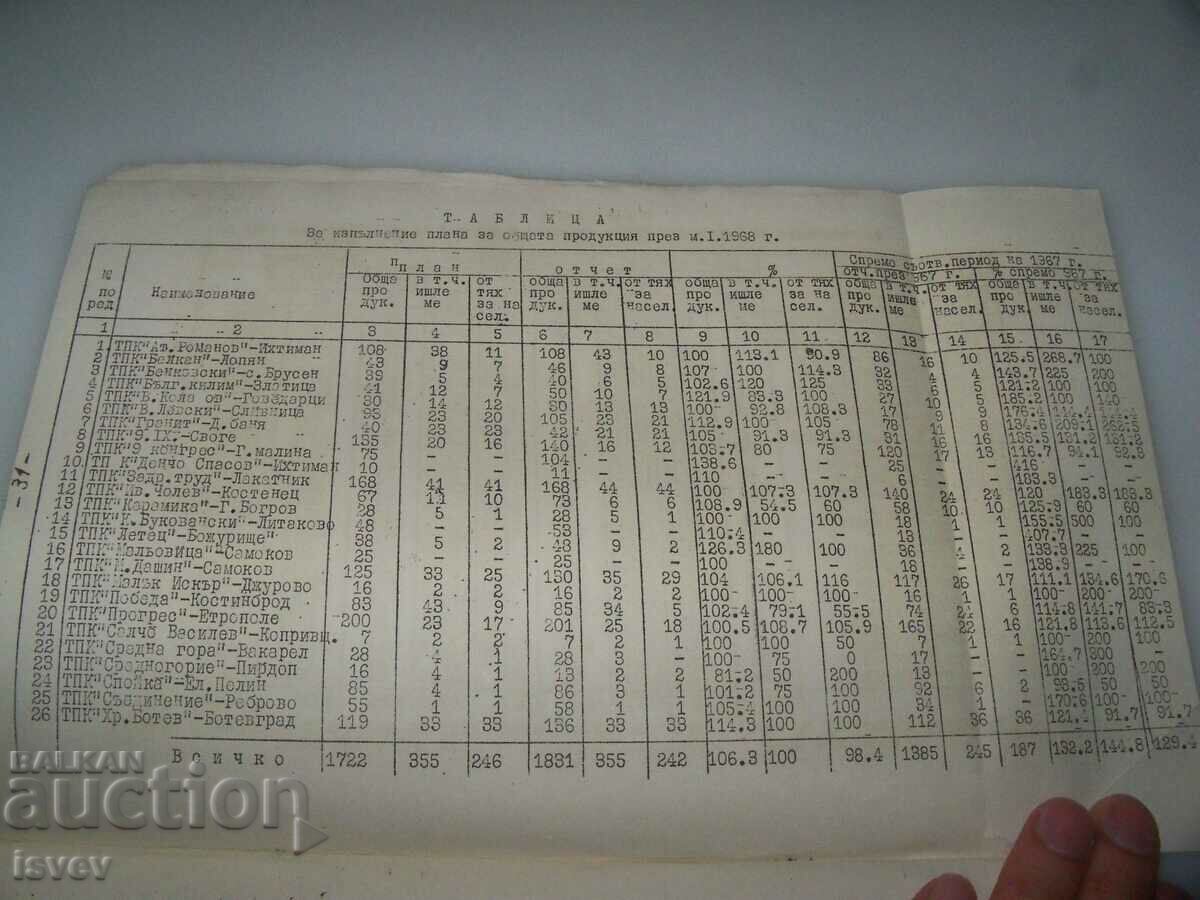 Т А Б Л И Ц А
За изпълнение плана за общата продукция през м.I.1968 г.
№ по ред
Наименование
план
отчет
%
Спремо съотв.период на 1367 г.
отч.през 967 г.
% спремо 967 г.
обща про дук.
в т.ч. ишле ме
от тях за на сел.
обща про дук.
в т.ч. ишле ме
от тях за насел.
обща про дук.
в т.ч. ишле ме
от тях за на сел.
обща про дук.
в т.ч. ишле ме
от тях за насел.
обща про дук.
в т.ч. ишле ме
от тях за насел.
1 2 3 4 5 6 7 8 9 10 11 12 13 14 15 16 17
1 ТПК"Ат.Романов"-Ихтиман 108 38 11 108 43 10 100 113.1 90.9 86 16 10 125.5 268.7 100
2 ТПК"Балкан"-Лопян 43 9 7 46 9 8 107 100 114.3 32 4 4 143.7 225 200
3 ТПК"Бенковски"-с.Брусен 39 5 4 40 6 5 102.6 120 125 33 6 5 121.2 100 100
4 ТПК"Бълг.килим"-Златица 41 12 7 50 10 7 121.9 83.3 100 27 10 5 185.2 100 140
5 ТПК"В.Коларов"-Говедарци 30 14 12 30 13 13 100 92.8 108.3 17
6 ТПК"В.Левски"-Сливница 95 23 20 105 23 21
7 ТПК"Гранит"-Д.баня 40 23 23 42 21 21 105 91.3 91.3
8 ТПК"9.IX."-Своге 135 20 16 140 16 12 80 75 120 17 13 116.7 94.1 92.3
9 ТПК"9 конгрес"-Г.малина 75 - - 104 - - 138.6 - - 25 - - 416 - -
10. ТП К"Денчо Спасов"-Ихтиман 10 - - 11 - - 110 - - 6 - - 183.3 - -
11 ТПК"Задр.труд"-Лакатник 168 41 41 168 44 44 100 107.3 107.3 140 24 24 120 183.3 183.3
12 ТПК"Ив.Чолев"-Костенец 67 11 10 73 6 6 108.9 54.5 60 58 10 10 125.9 60 60
13 ТПК"Керамика"-Г.Богров 28 5 1 28 5 1 100 100 100 18 1 1 155.5 500 100
14 ТПК"К.Буковански"-Литаково 48 - - 53 - - 110.4 - - 13 - - 407.7 - -
15 ТПК"Летец"-Божурище" 38 5 2 48 9 2 126.3 180 100 36 4 2 133.3 225 100
16 ТПК"Мальовица"-Самоков 25 - - 25 - - 100 - - 18 - - 138.9 - -
17 ТПК"М.Дашин"-Самоков 125 33 25 130 35 29 104 106.1 116 117 26 17 111.1 134.6 170.6
18 ТПК"Малък Искър"-Джурово 16 2 2 16 2 2 100 100 100 16 1 1 100 200 200
19 ТПК"Победа"-Костинброд 83 43 9 85 34 5 102.4 79.1 55.5 74 24 6 114.8 141.7 83.3
20 ТПК"Прогрес"-Етрополе 200 23 17 201 25 18 100.5 108.7 105.9 165 22 16 121.8 113.6 112.5
21 ТПК"Салчо Василев"-Копривщ. 7 2 2 7 2 1 100 100 50 7 1 1 100 200 100
22 ТПК"Средна гора"-Вакарел 28 4 1 28 3 - 100 75 0 17 1 - 164.7 300 -
23 ТПК"Средногорие"-Пирдоп 16 4 1 13 2 2 81.2 50 200 13 1 1 100 200 200
24 ТПК"Спойка"-Ел.Пелин 85 4 1 86 3 1 101.2 75 100 92 6 2 93.5 50 50
25 ТПК"Съединение"-Реброво 55 1 1 58 1 1 105.4 100 100 34 1 - 170.6 100 -
26 ТПК"Хр.Ботев"-Ботевград 119 33 33 136 33 33 114.3 100 100 112 36 36 121.4 91.7 91.7
Всичко 1722 355 246 1831 355 242 106.3 100 98.4 1385 245 187 132.2 144.8 129.4
-31-
BALKAN
auction
isvev